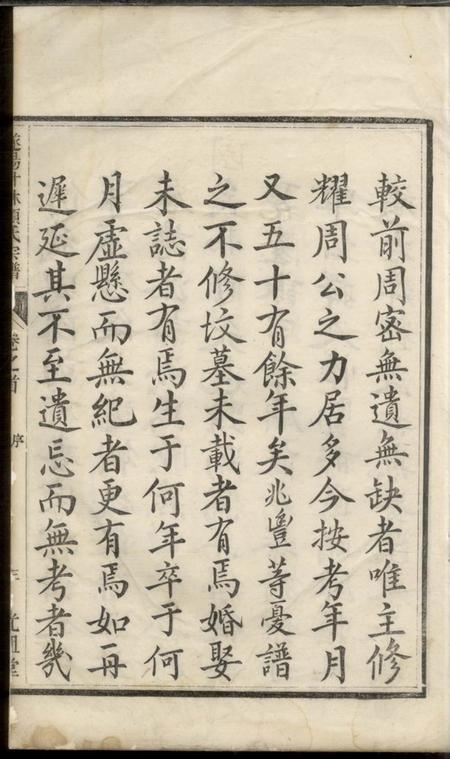 較前周密無遺無缺者唯主修
耀周公之力居多今按考年月
又五十有餘年矣兆豐等憂譜
之不修坟墓未載者有焉婚娶
未誌者有焉生于何年卒于何
月虛懸而無紀者更有焉如再
遲延其不至遺忘而無考者幾
項氏宗譜
卷之首
序